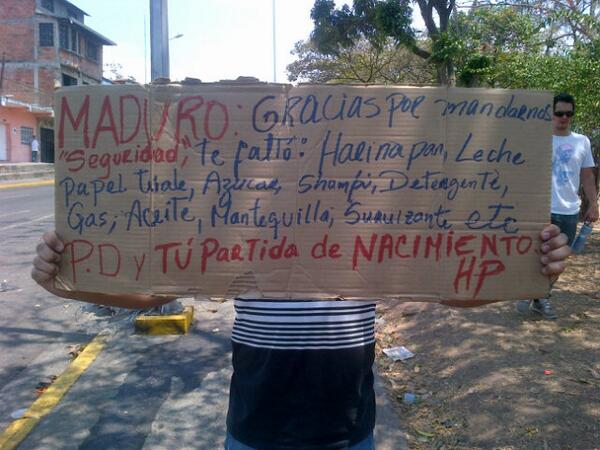 MADURO: Gracias por mandarnos
"Seguridad", Te faltó: Harina pan, Leche
papel tuale, Azucar, Shampú, Detergente,
Gas, Aceite, Mantequilla, Suavizante etc
P.D y TÚ PARTIDA de NACIMIENTO.
HP